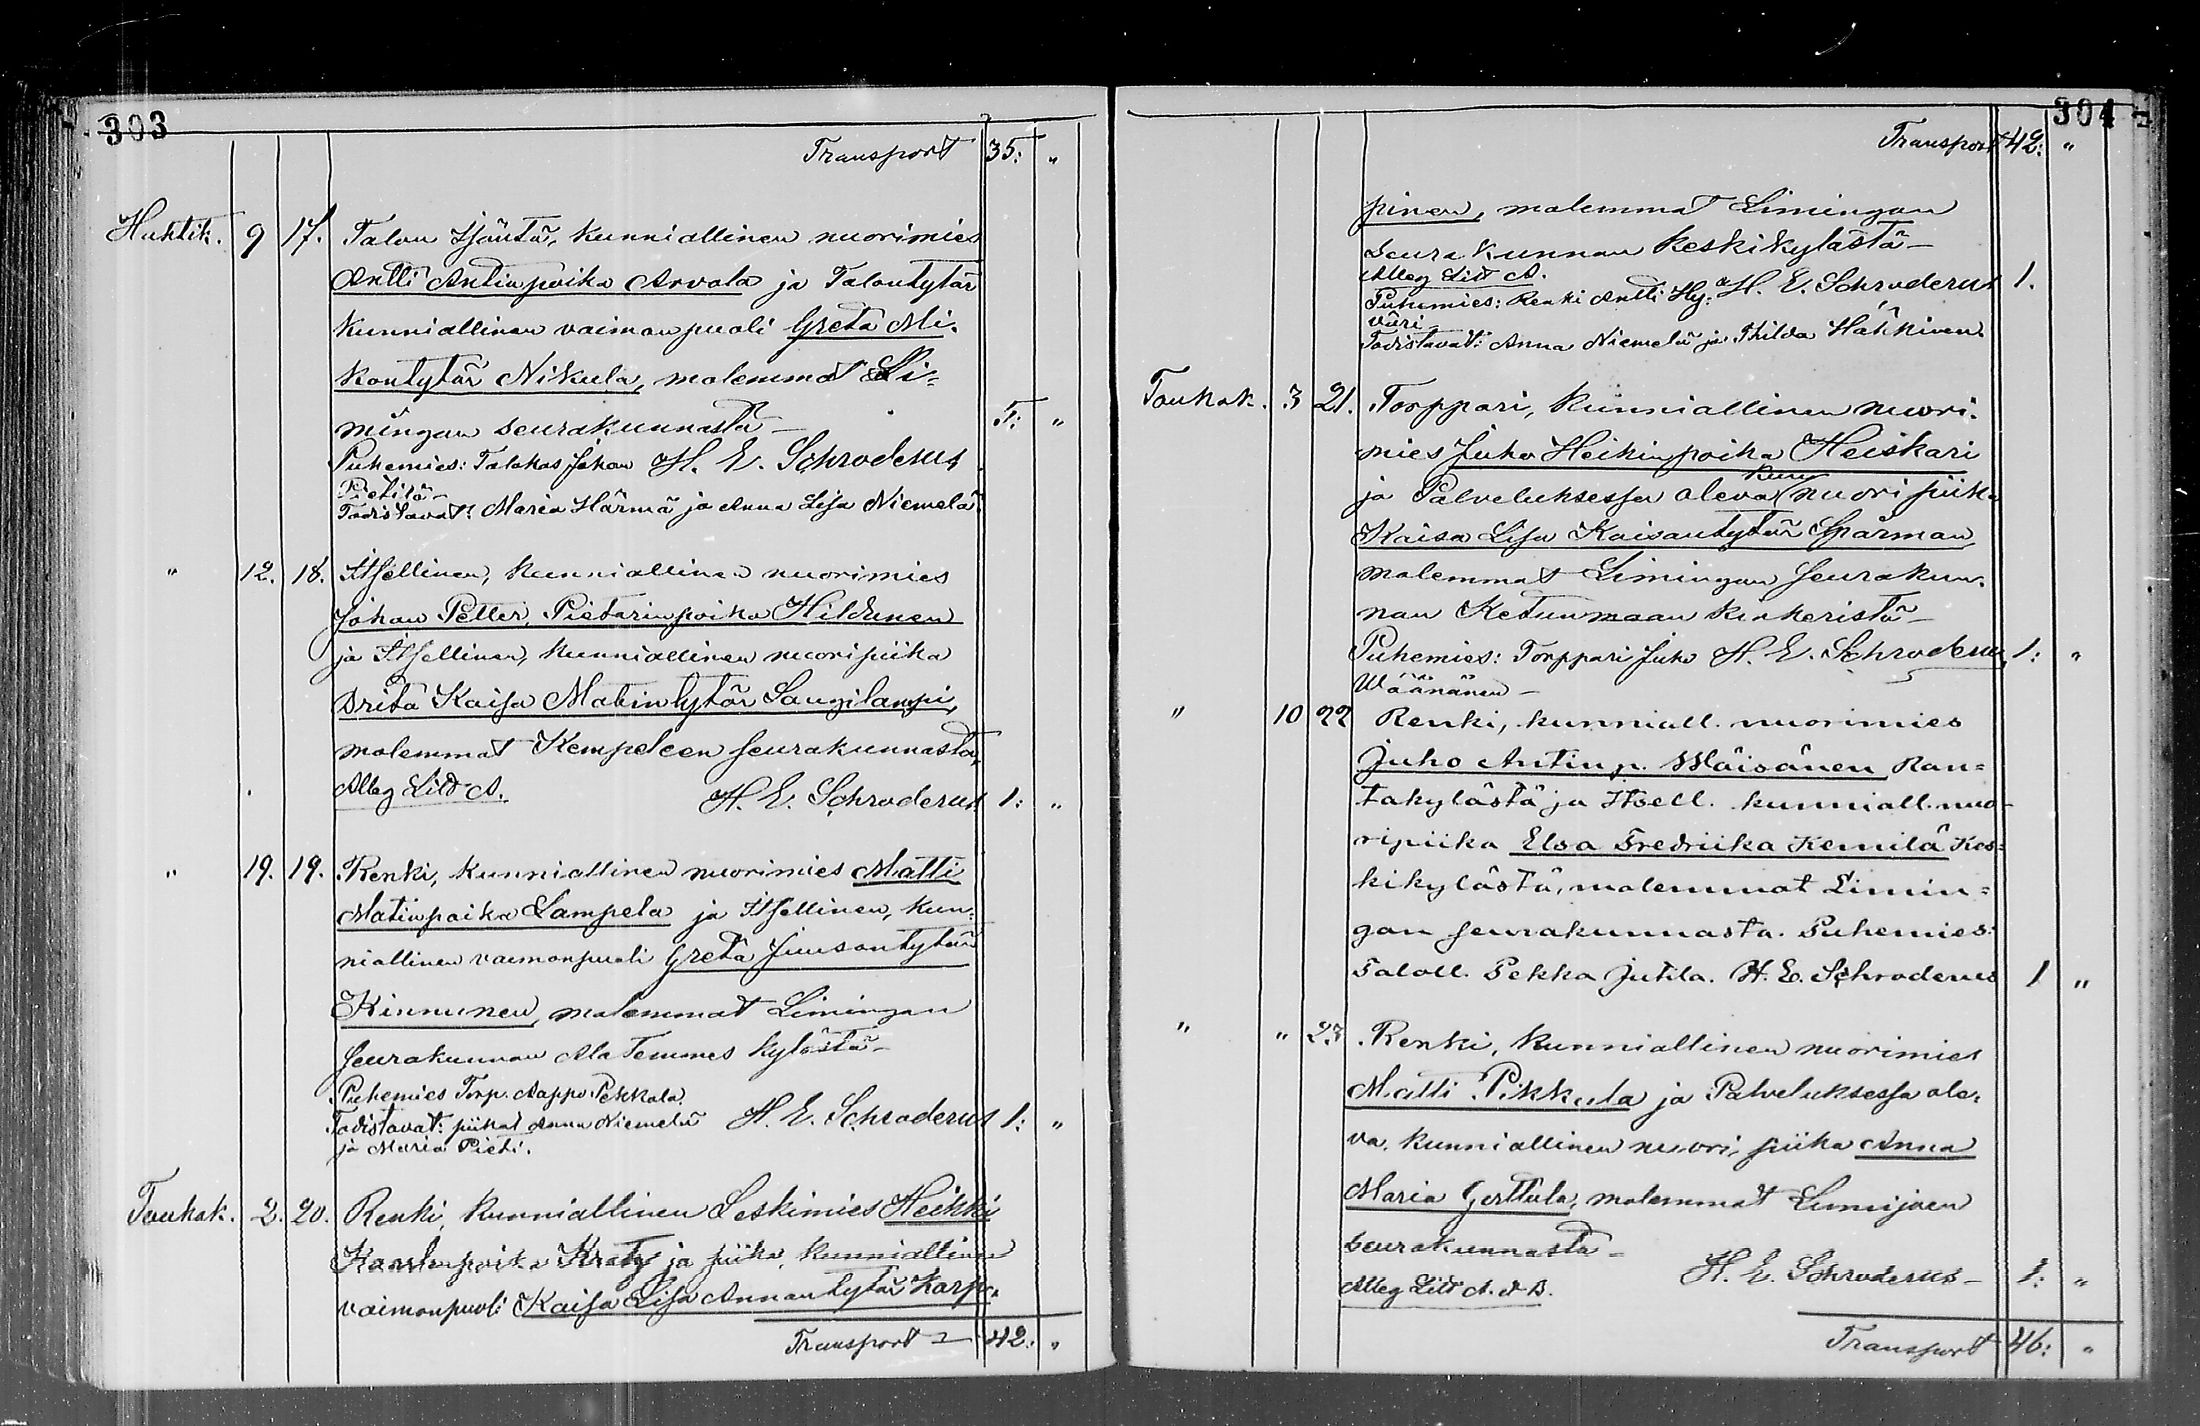 303
Transport 35: "
Huhtik. 9 17. Talon Isäntä, kunniallinen nuorimies
Antti Antinpoika Arvola ja Talontytär
kunniallinen vaimonpuoli Greta Mi-
kontytär Nikula, molemmat Li-
mingan seurakunnasta – 5: "
Puhemies: Talokas Johan H. E. Schroderus
Pietilä –
Todistavat: Maria Härmä ja Anna Lisa Niemelä.
" 12. 18. Itsellinen, kunniallinen nuorimies
Johan Petter Pietarinpoika Hildunen
ja Itsellinen, kunniallinen nuoripiika
Brita Kaisa Matintytär Laugilampi,
molemmat Kempeleen seurakunnasta,
Alleg Litt A. H. E. Schroderus 1: "
" 19. 19. Renki, kunniallinen nuorimies Matti
Matinpoika Lampela ja Itsellinen, kun-
niallinen vaimonpuoli Greta Juusontytär
Kinnunen, molemmat Limingan
seurakunnan Ala Temmes kylästä –
Puhemies Torp. Aappo Pekkala.
Todistavat: piikat Anna Niemelä H. E. Schroderus 1: "
ja Maria Pieti.
Toukok. 2. 20. Renki, kunniallinen Leskimies Heikki
Kaarlenpoika Kratz ja piika, kunniallinen
vaimonpuoli Kaisa Lisa Annantytär Karp-
Transport 42: "
304
Transport 42: "
pinen, molemmat Limingan
seurakunnan Keskikylästä –
Alleg Litt A.
Puhemies: Renki Antti Hy- H. E. Schroderus 1.
väri
Todistavat: Anna Niemelä ja Hilda Häkkinen.
Toukok. 3 21. Torppari, kunniallinen nuori-
mies Juho Heikinpoika Heiskari
ja Palveluksessa oleva kunn nuori piika
Kaisa Lisa Kaisantytär Spårman
molemmat Limingan seurakun-
nan Ketunmaan kinkeristä –
Puhemies: Torppari Juho H. E. Schroderus 1: "
Wäänänen –
" 10 22 Renki, kunniall. nuorimies
Juho Antinp. Wäisänen Ran-
takylästä ja Itsell. kunniall. nuo-
ripiika Elsa Fredriika Kemilä Kes-
kikylästä, molemmat Limin-
gan seurakunnasta. Puhemies:
Taloll. Pekka Jutila. H. E. Schroderus 1 "
" " 23. Renki, kunniallinen nuorimies
Matti Pikkula ja Palveluksessa ole-
va, kunniallinen nuori piika Anna
Maria Gerttula, molemmat Lumijoen
seurakunnasta –
H. E. Schroderus – 1: "
Alleg Litt A. & B.
Transport 46: "